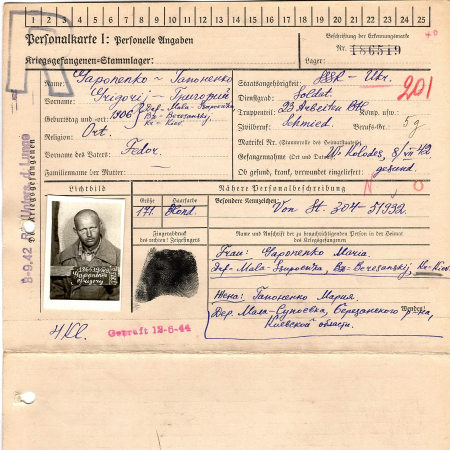 1 2 3 4 5 6 7 8 9 10 11 12 13 14 15 16 17 18 19 20 21 22 23 24 25
Personalkarte I: Personelle Angaben
Kriegsgefangenen-Stammlager:
Beschriftung der Erkennungsmarke
Nr. 186519
Lager:
Name: Gaponenko - Гапоненко
Vorname: Grigorij - Григорий
Geburtstag und -ort: 1906
Religion: Ort.
Vorname des Vaters: Fedor
Familienname der Mutter:
Staatsangehörigkeit: SSR - Ukr.
201
Dienstgrad: Soldat
Truppenteil: 23 Arbeiten Btl Komp. usw.:
Zivilberuf: Schmied Berufs-Gr.: 5 g
Matrikel Nr. (Stammrolle des Heimatstaates)
Gefangennahme (Ort und Datum):
Ob gesund, krank, verwundet eingeliefert: gesund
Lichtbild
Nähere Personalbeschreibung
Größe Haarfarbe Besondere Kennzeichen:
171 blond. Von St. 304 51992
Fingerabdruck
des rechten Zeigefingers
Name und Anschrift der zu benachrichtigenden Person in der Heimat
des Kriegsgefangenen
Frau: Gaponenko Maria
Жена: Гапоненко Мария.
Дер. Мала-Супоевка, Березанского р-на,
Киевской области.
186519
Gaponenko
Grigory
4 Kl.
Geprüft 12-6-44